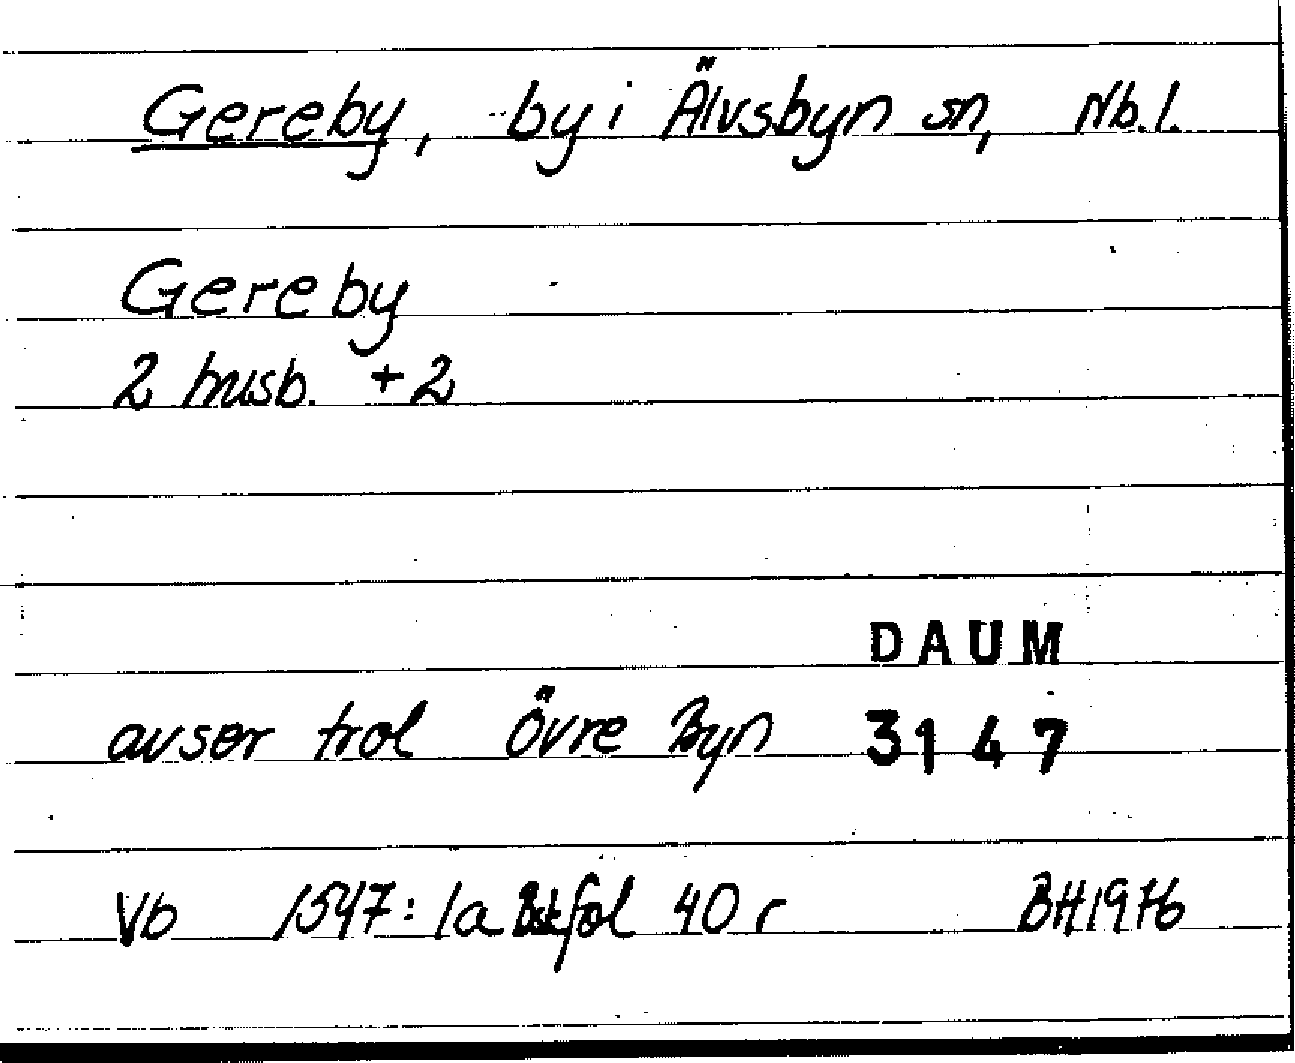 Gereby, by i Älvsbyn sn, Nb. l.
Gereby
2 husb. + 2
DAUM
avser trol Övre Byn 3147
Vb 1547: 1a fol 40 r BH 1976